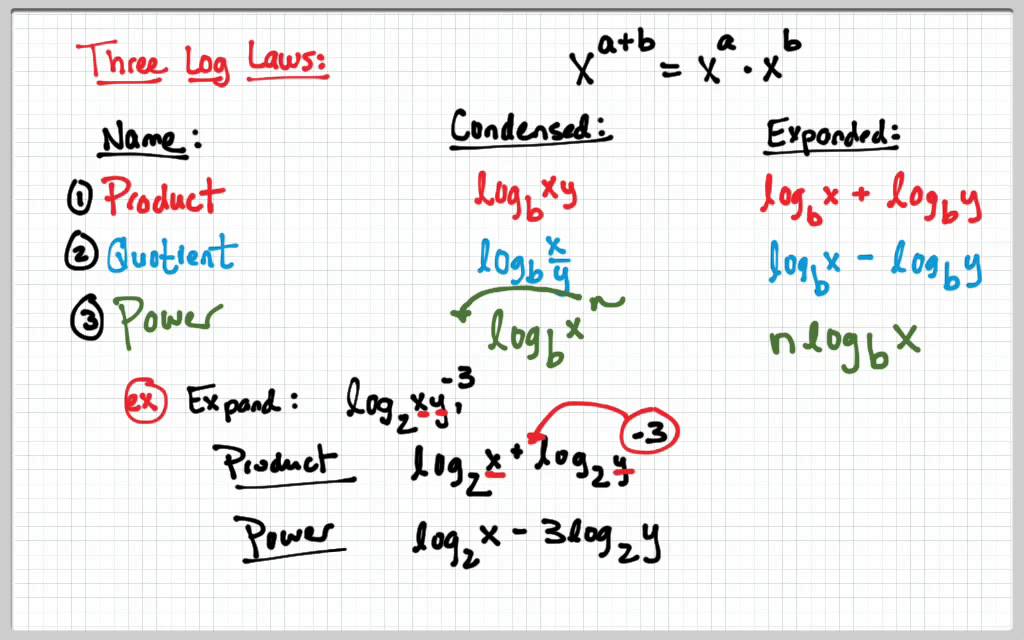 Three Log Laws: x^(a+b) = x^a · x^b
Name: Condensed: Expanded:
① Product log_b xy log_b x + log_b y
② Quotient log_b x/y log_b x - log_b y
③ Power log_b x^n n log_b x
ex Expand: log_2 xy^-3
Product log_2 x + log_2 y^-3
Power log_2 x - 3 log_2 y